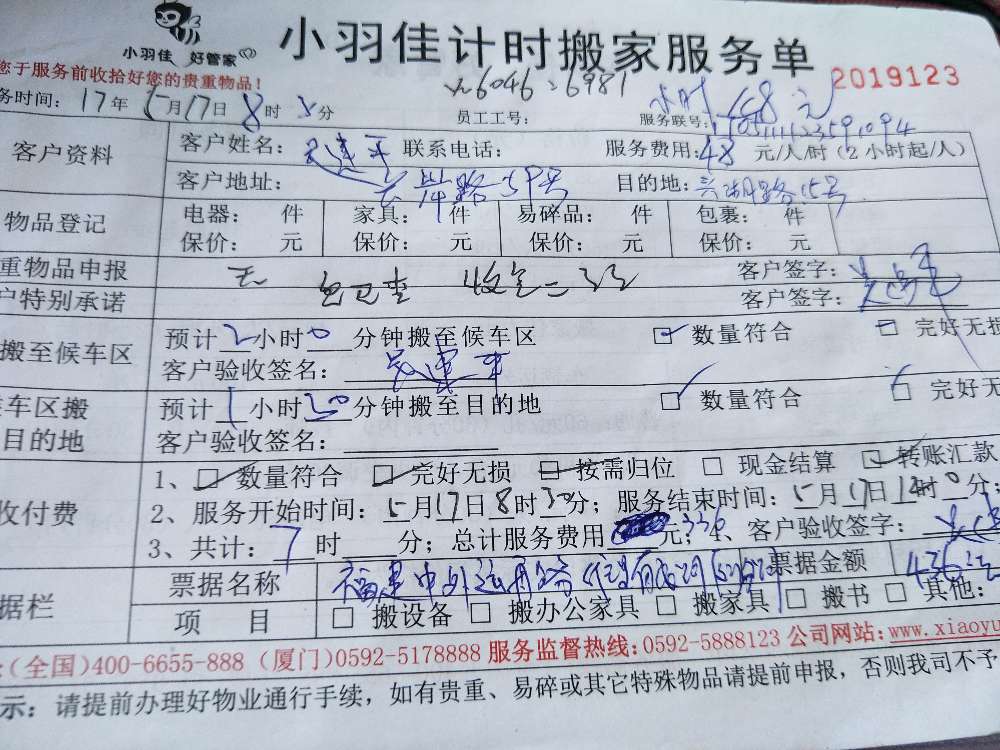 小羽佳 好管家
小羽佳计时搬家服务单
您于服务前收拾好您的贵重物品！
2019123
6046 26981
小时 48元
务时间：17年5月17日8时30分 员工工号： 服务联号：
客户资料 客户姓名： 联系电话： 服务费用：48元/人/时（2小时起/人）
客户地址： 路59号 目的地：兴湖路15号
物品登记 电器： 件 家具： 件 易碎品： 件 包裹： 件
保价： 元 保价： 元 保价： 元 保价： 元
重物品申报 无 客户签字：
户特别承诺 客户签字：
搬至候车区 预计2小时0分钟搬至候车区 数量符合 完好无损
客户验收签名：
车区搬 预计1小时30分钟搬至目的地 数量符合 完好无
目的地 客户验收签名：
1、 数量符合 完好无损 按需归位 现金结算 转账汇款
收付费 2、服务开始时间：5月17日8时30分；服务结束时间：5月17日14时0分；
3、共计：7时 分；总计服务费用 336元；4、客户验收签字：
据栏 票据名称 福建中外运 有限公司 票据金额 436元
项 目 搬设备 搬办公家具 搬家具 搬书 其他：
：（全国）400-6655-888（厦门）0592-5178888 服务监督热线：0592-5888123 公司网站：www.xiaoyu
示：请提前办理好物业通行手续，如有贵重、易碎或其它特殊物品请提前申报，否则我司不予